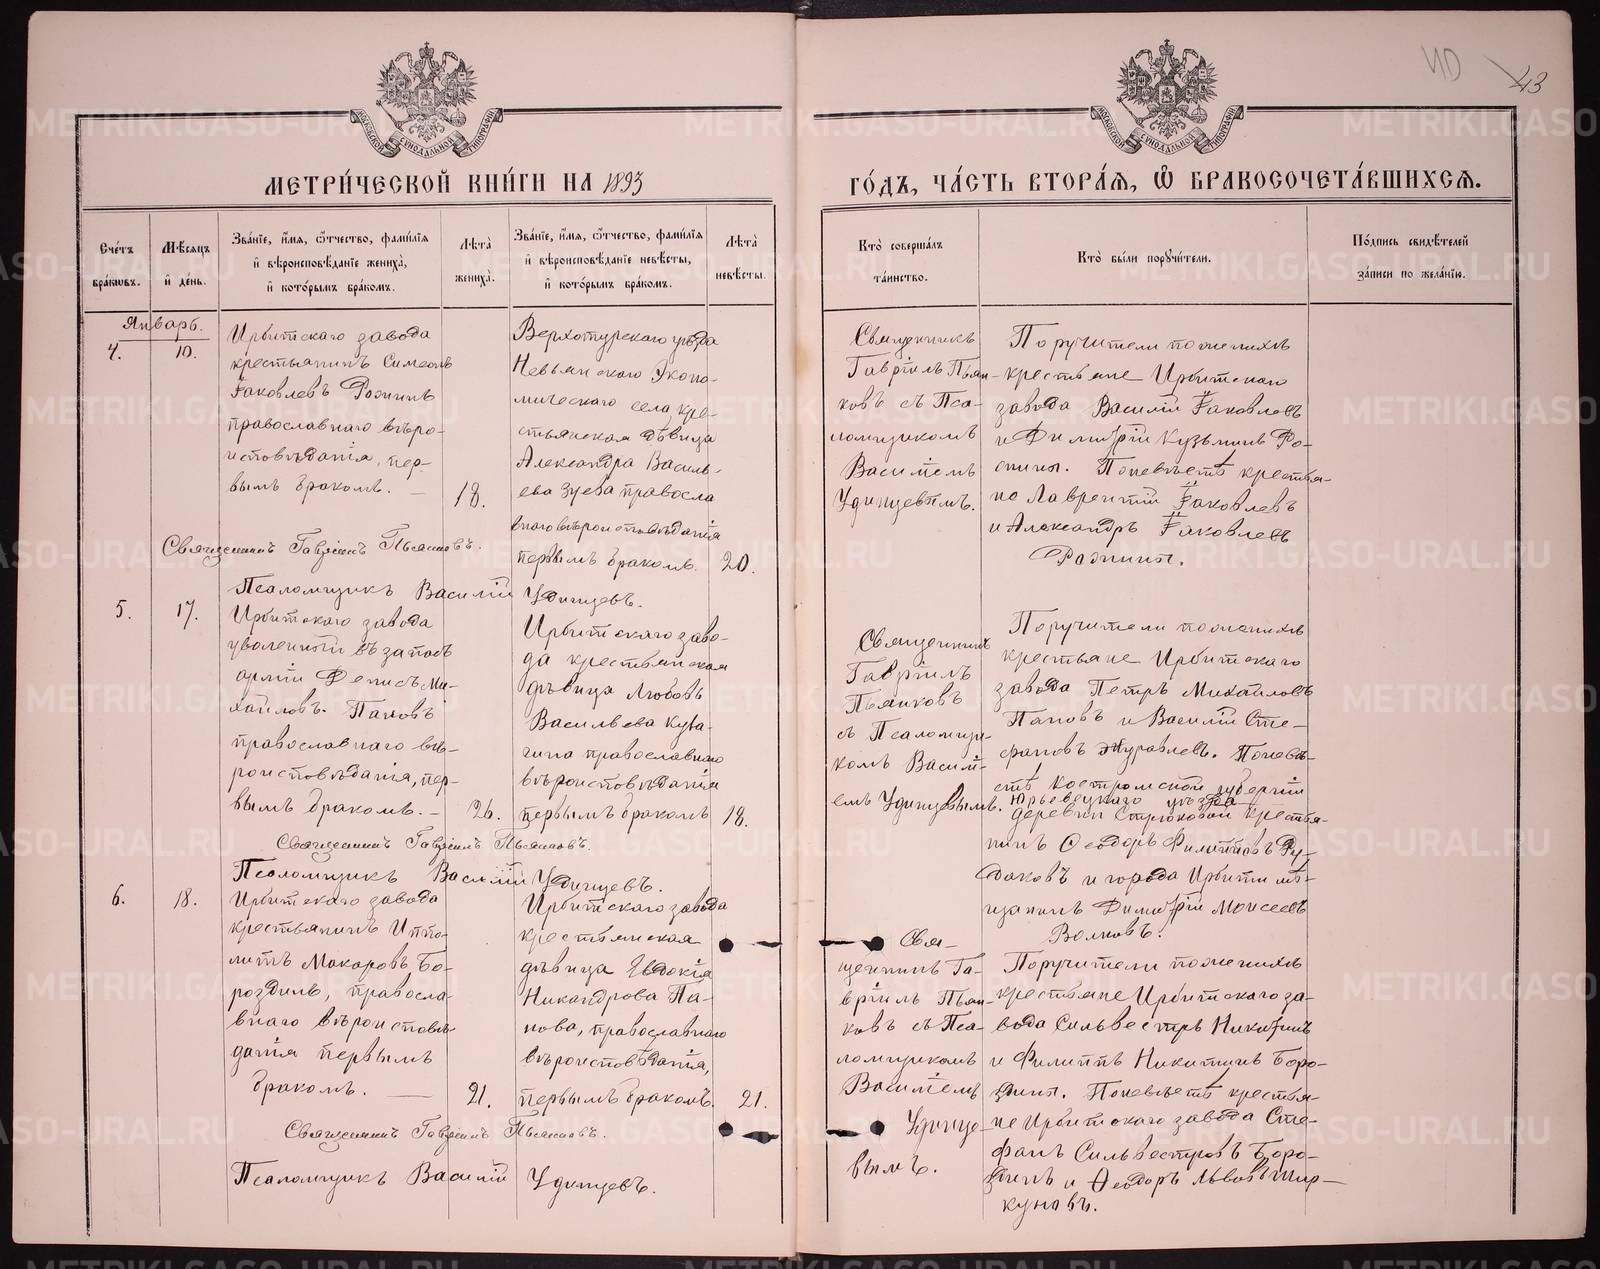 40
43
МЕТРИЧЕСКОЙ КНИГИ НА 1893
ГОДЪ, ЧАСТЬ ВТОРАЯ, Ѡ БРАКОСОЧЕТАВШИХСЯ.
Счетъ браковъ.
Мѣсяцъ и день.
Званіе, имя, отчество, фамилія
и вѣроисповѣданіе жениха,
и которымъ бракомъ.
Лѣта жениха.
Званіе, имя, отчество, фамилія
и вѣроисповѣданіе невѣсты,
и которымъ бракомъ.
Лѣта невѣсты.
Кто совершалъ
таинство.
Кто были поручители.
Подпись свидѣтелей
записи по желанію.
Январь.
4.
10.
Ирбитскаго завода
крестьянинъ Симеонъ
Іаковлевъ Рожинъ
православнаго вѣро-
исповѣданія, пер-
вымъ бракомъ. —
18.
Верхотурскаго уѣзда
Невьянскаго Эконо-
мическаго села, кре-
стьянская дѣвица
Александра Василь-
ева Зуева правосла
внаго вѣроисповѣданія
первымъ бракомъ.
20.
Священникъ
Гавріилъ Пьян-
ковъ съ Пса-
ломщикомъ
Василіемъ
Удинцевымъ.
Поручители по женихѣ
крестьяне Ирбитскаго
завода Василій Іаковлевъ
и Димитрій Кузьминъ Ро-
жины. По невѣстѣ крестья-
не Лаврентій Іаковлевъ
и Александръ Іаковлевъ
Рожины.
Священникъ Гавріилъ Пьянковъ.
Псаломщикъ Василій Удинцевъ.
5.
17.
Ирбитскаго завода
уволенный въ запасъ
арміи Денисъ Ми-
хайловъ. Пановъ
православнаго вѣ-
роисповѣданія, пер-
вымъ бракомъ. —
26.
Ирбитскаго заво-
да крестьянская
дѣвица Любовь
Васильева Кута-
гина православнаго
вѣроисповѣданія
первымъ бракомъ
18.
Священникъ
Гавріилъ
Пьянковъ
съ Псаломщи-
комъ Василі-
емъ Удинцевымъ.
Поручители по женихѣ
крестьяне Ирбитскаго
завода Петръ Михайловъ
Пановъ и Василій Сте-
фановъ Журавлевъ. По невѣ-
стѣ Костромской губерніи
Юрьевецкаго уѣзда
деревни крестья-
нинъ Ѳеодоръ Филипповъ Ру-
даковъ и города Ирбити мѣ-
щанинъ Димитрій Моисеевъ
Волковъ.
Священникъ Гавріилъ Пьянковъ.
Псаломщикъ Василій Удинцевъ.
6.
18.
Ирбитскаго завода
крестьянинъ Иппо-
литъ Макаровъ Бо-
роздинъ, правосла-
внаго вѣроисповѣ-
данія первымъ
бракомъ. —
21.
Ирбитскаго завода
крестьянская
дѣвица Евдокія
Никандрова Па-
нова, православнаго
вѣроисповѣданія,
первымъ бракомъ.
21.
Свя-
щенникъ Га-
вріилъ Пьян-
ковъ съ Пса-
ломщикомъ
Василіемъ
Удинце-
вымъ.
Поручители по женихѣ
крестьяне Ирбитскаго за-
вода Сильвестръ Никитинъ
и Филиппъ Никитинъ Боро-
здины. По невѣстѣ крестья-
не Ирбитскаго завода Сте-
фанъ Сильвестровъ Боро-
здинъ и Ѳеодоръ Львовъ Шир-
куновъ.
Священникъ Гавріилъ Пьянковъ.
Псаломщикъ Василій Удинцевъ.